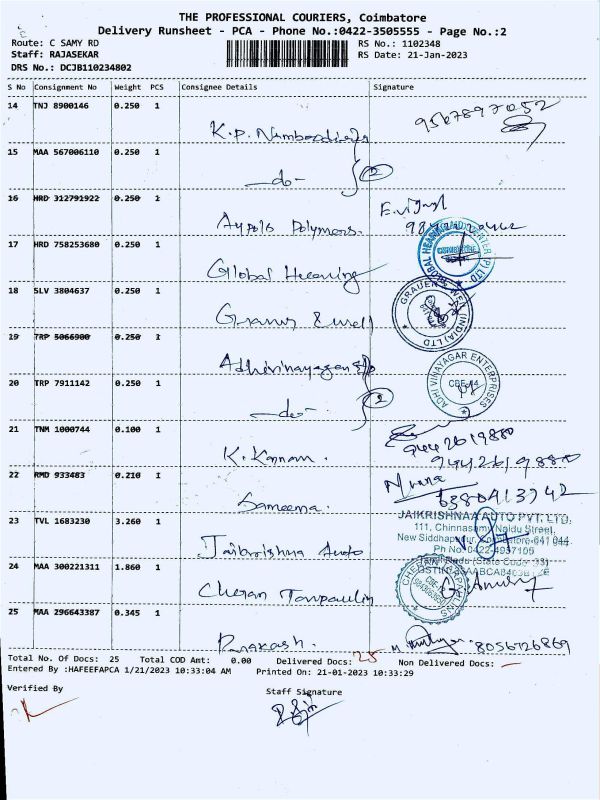 THE PROFESSIONAL COURIERS, Coimbatore
Delivery Runsheet - PCA - Phone No.:0422-3505555 - Page No.:2
Route: C SAMY RD RS No.: 1102348
Staff: RAJASEKAR RS Date: 21-Jan-2023
DRS No.: DCJB110234802
S No Consignment No Weight PCS Consignee Details Signature
14 TNJ 8900146 0.250 1
K.P. 9567897052
15 MAA 567006110 0.250 1
-do- 2
16 HRD 312791922 0.250 1
Aypols Polymers. 
17 HRD 758253680 0.250 1
Global Hearing
GLOBAL HEARING AID CENTER (P) LTD
18 SLV 3804637 0.250 1
GRAUER & WEIL (INDIA) LTD
19 TRP 5066900 0.250 1
Adhivinayagar
20 TRP 7911142 0.250 1
-do- 2
ADHI VINAYAGAR ENTERPRISES
CBE-44
21 TNM 1000744 0.100 1
K. Kannan. 9442619880
9442619880
22 RMD 933483 0.210 1
Sameema. 6380413742
23 TVL 1683230 3.260 1
Jaikrishna Auto
JAIKRISHNAA AUTO PVT. LTD.
111, Chinnasamy Naidu Street,
New Siddhapur, Coimbatore-641 044
Ph No: 0422-4957109
Tamil Nadu (State Code: 33)
24 MAA 300221311 1.860 1
Cheran Tarpaulin
CHERAN TARPAULINS
25 MAA 296643387 0.345 1
Prakash. 8056726869
Total No. Of Docs: 25 Total COD Amt: 0.00 Delivered Docs: 25 Non Delivered Docs: -
Entered By :HAFEEFAPCA 1/21/2023 10:33:04 AM Printed On: 21-01-2023 10:33:29
Verified By Staff Signature